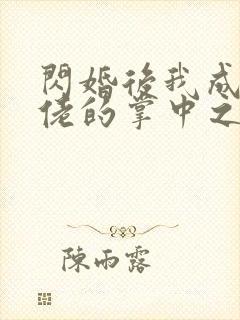 閃婚後我成
佬的掌中之
陳雨露